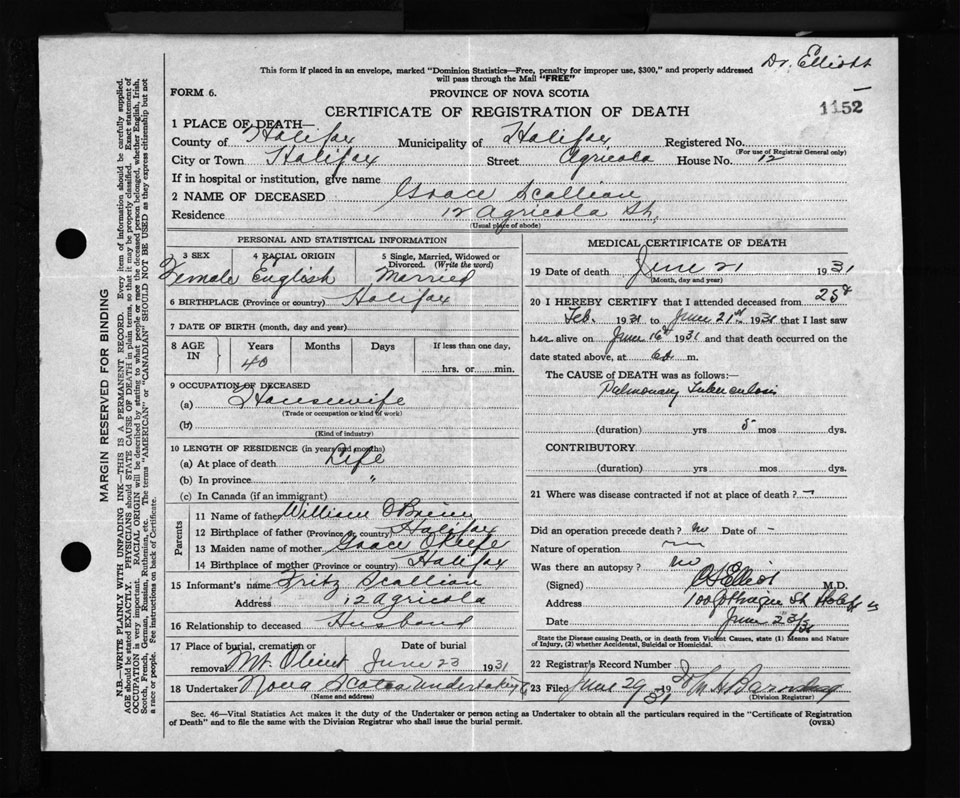 Dr. Elliott
This form if placed in an envelope, marked "Dominion Statistics—Free, penalty for improper use, $300," and properly addressed
will pass through the Mail "FREE"
FORM 6.
PROVINCE OF NOVA SCOTIA
1152
CERTIFICATE OF REGISTRATION OF DEATH
1 PLACE OF DEATH—
County of Halifax Municipality of Halifax Registered No.
(For use of Registrar General only)
City or Town Halifax Street Agricola House No. 12
If in hospital or institution, give name
2 NAME OF DECEASED Grace Scallion
Residence 12 Agricola St.
(Usual place of abode)
PERSONAL AND STATISTICAL INFORMATION
3 SEX 4 RACIAL ORIGIN 5 Single, Married, Widowed or
Divorced. (Write the word)
Female English Married
6 BIRTHPLACE (Province or country) Halifax
7 DATE OF BIRTH (month, day and year)
8 AGE IN Years Months Days If less than one day,
40 hrs. or min.
9 OCCUPATION OF DECEASED
(a) Housewife
(Trade or occupation or kind of work)
(b)
(Kind of industry)
10 LENGTH OF RESIDENCE (in years and months)
(a) At place of death Life
(b) In province "
(c) In Canada (if an immigrant)
Parents
11 Name of father William O'Brien
12 Birthplace of father (Province or country) Halifax
13 Maiden name of mother Grace O'Keefe
14 Birthplace of mother (Province or country) Halifax
15 Informant's name Fritz Scallion
Address 12 Agricola
16 Relationship to deceased Husband
17 Place of burial, cremation or Date of burial
removal Mt. Olivet June 23 1931
18 Undertaker Nova Scotia Undertaking Co
(Name and address)
MEDICAL CERTIFICATE OF DEATH
19 Date of death June 21 1931
(Month, day and year)
20 I HEREBY CERTIFY that I attended deceased from 25th
Feb. 1931 to June 21st 1931 that I last saw
her alive on June 16th 1931 and that death occurred on the
date stated above, at m.
The CAUSE of DEATH was as follows:
Pulmonary Tuberculosis
(duration) yrs 5 mos dys.
CONTRIBUTORY
(duration) yrs. mos. dys.
21 Where was disease contracted if not at place of death? —
Did an operation precede death? No Date of —
Nature of operation
Was there an autopsy? no
(Signed) Elliott M.D.
Address St Halifax
Date June 23/31
State the Disease causing Death, or in death from Violent Causes, state (1) Means and Nature
of Injury, (2) whether Accidental, Suicidal or Homicidal.
22 Registrar's Record Number
23 Filed June 29 1931
(Division Registrar)
Sec. 46—Vital Statistics Act makes it the duty of the Undertaker or person acting as Undertaker to obtain all the particulars required in the "Certificate of Registration
of Death" and to file the same with the Division Registrar who shall issue the burial permit. (OVER)
MARGIN RESERVED FOR BINDING
N.B.—WRITE PLAINLY WITH UNFADING INK—THIS IS A PERMANENT RECORD. Every item of information should be carefully supplied.
AGE should be stated EXACTLY. PHYSICIANS should STATE CAUSE OF DEATH in plain terms, so that it may be properly classified. Exact statement of
OCCUPATION is very important. RACIAL ORIGIN will be described by stating to what people or race the deceased person belonged, whether English, Irish,
Scotch, French, German, Russian, Ruthenian, etc. The terms "AMERICAN" or "CANADIAN" SHOULD NOT BE USED as they express citizenship but not
a race or people. See instructions on back of Certificate.